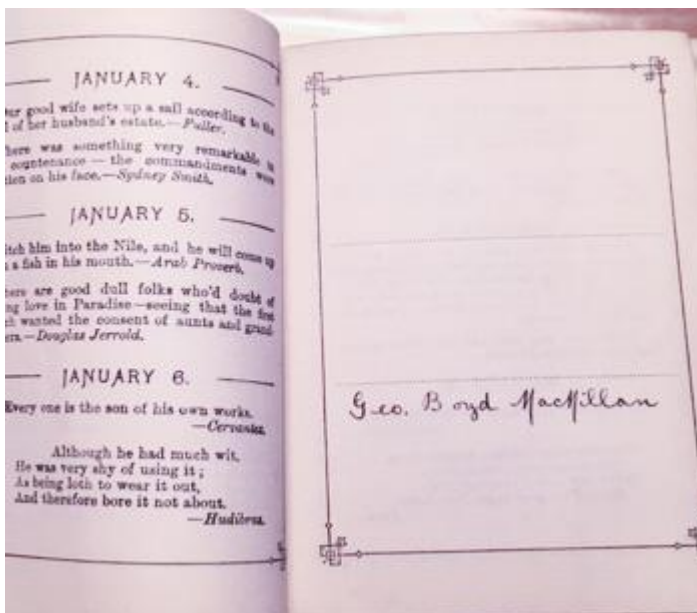 JANUARY 4.
good wife sets up a sail according to the
of her husband's estate.—Fuller.
here was something very remarkable in
countenance — the commandments were
on his face.—Sydney Smith.
JANUARY 5.
him into the Nile, and he will come up
a fish in his mouth.—Arab Proverb.
are good dull folks who'd doubt of
love in Paradise—seeing that the first
wanted the consent of aunts and grand-
—Douglas Jerrold.
JANUARY 6.
Every one is the son of his own works.
—Cervantes.
Although he had much wit,
He was very shy of using it;
As being loth to wear it out,
And therefore bore it not about.
—Hudibras.
Geo. Boyd MacMillan